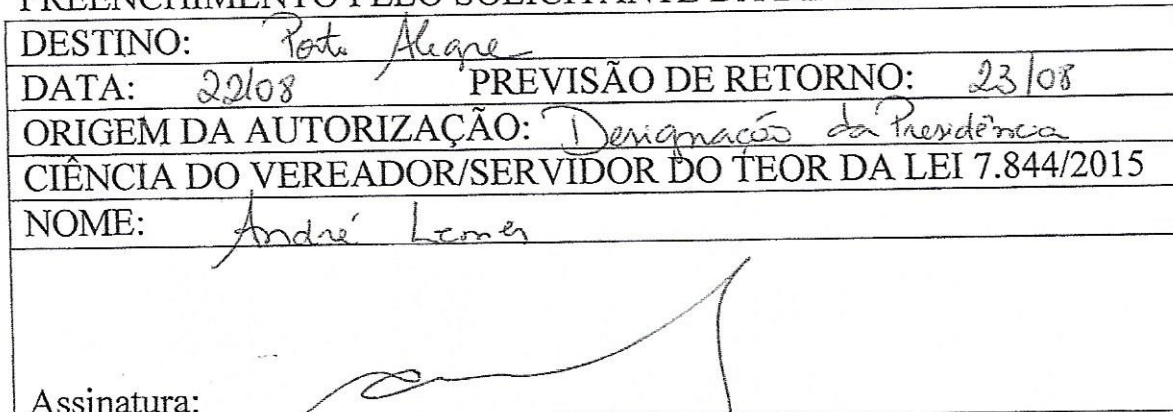 PREENCHIMENTO PELO SOLICITANTE
DESTINO: Porto Alegre
DATA: 22/08 PREVISÃO DE RETORNO: 23/08
ORIGEM DA AUTORIZAÇÃO: Designação da Presidência
CIÊNCIA DO VEREADOR/SERVIDOR DO TEOR DA LEI 7.844/2015
NOME: André Lemes
Assinatura: